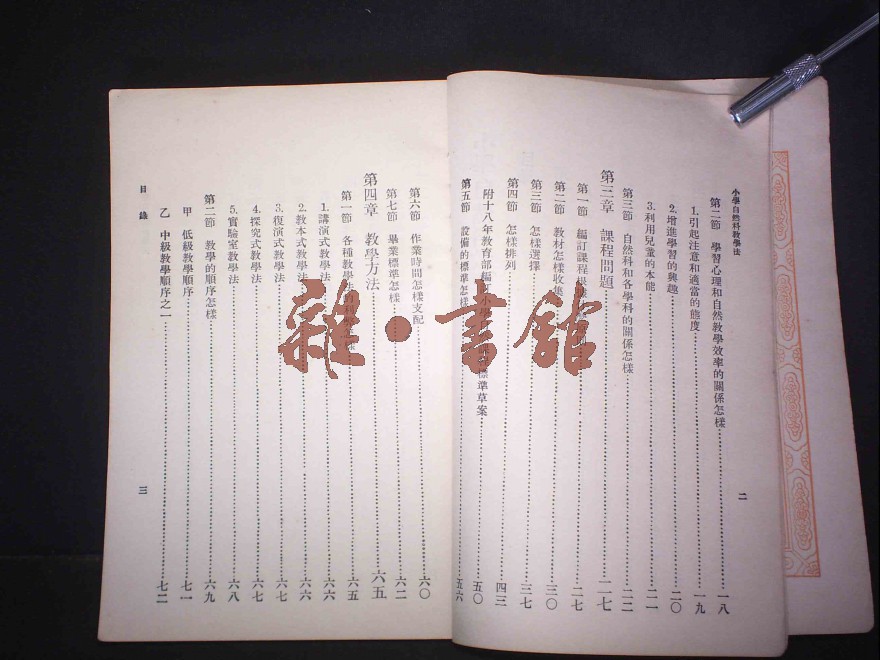 小學自然科教學法
二
第二節 學習心理和自然教學效率的關係怎樣…一八
1.引起注意和適當的態度…一九
2.增進學習的興趣…二〇
3.利用兒童的本能…二一
第三節 自然科和各學科的關係怎樣…二二
第三章 課程問題…二七
第一節 編訂課程根…二七
第二節 教材怎樣收集…三〇
第三節 怎樣選擇…三七
第四節 怎樣排列…四三
附十八年教育部編訂小學…標準草案…五〇
第五節 設備的標準怎樣…五六
第六節 作業時間怎樣支配…六〇
第七節 畢業標準怎樣…六二
第四章 教學方法…六五
第一節 各種教學法…六五
1.講演式教學法…六六
2.教本式教學法…六六
3.復演式教學法…六七
4.探究式教學法…六七
5.實驗室教學法…六八
第二節 教學的順序怎樣…六九
甲 低級教學順序…七一
乙 中級教學順序之一…七二
目錄
三
雜·書館